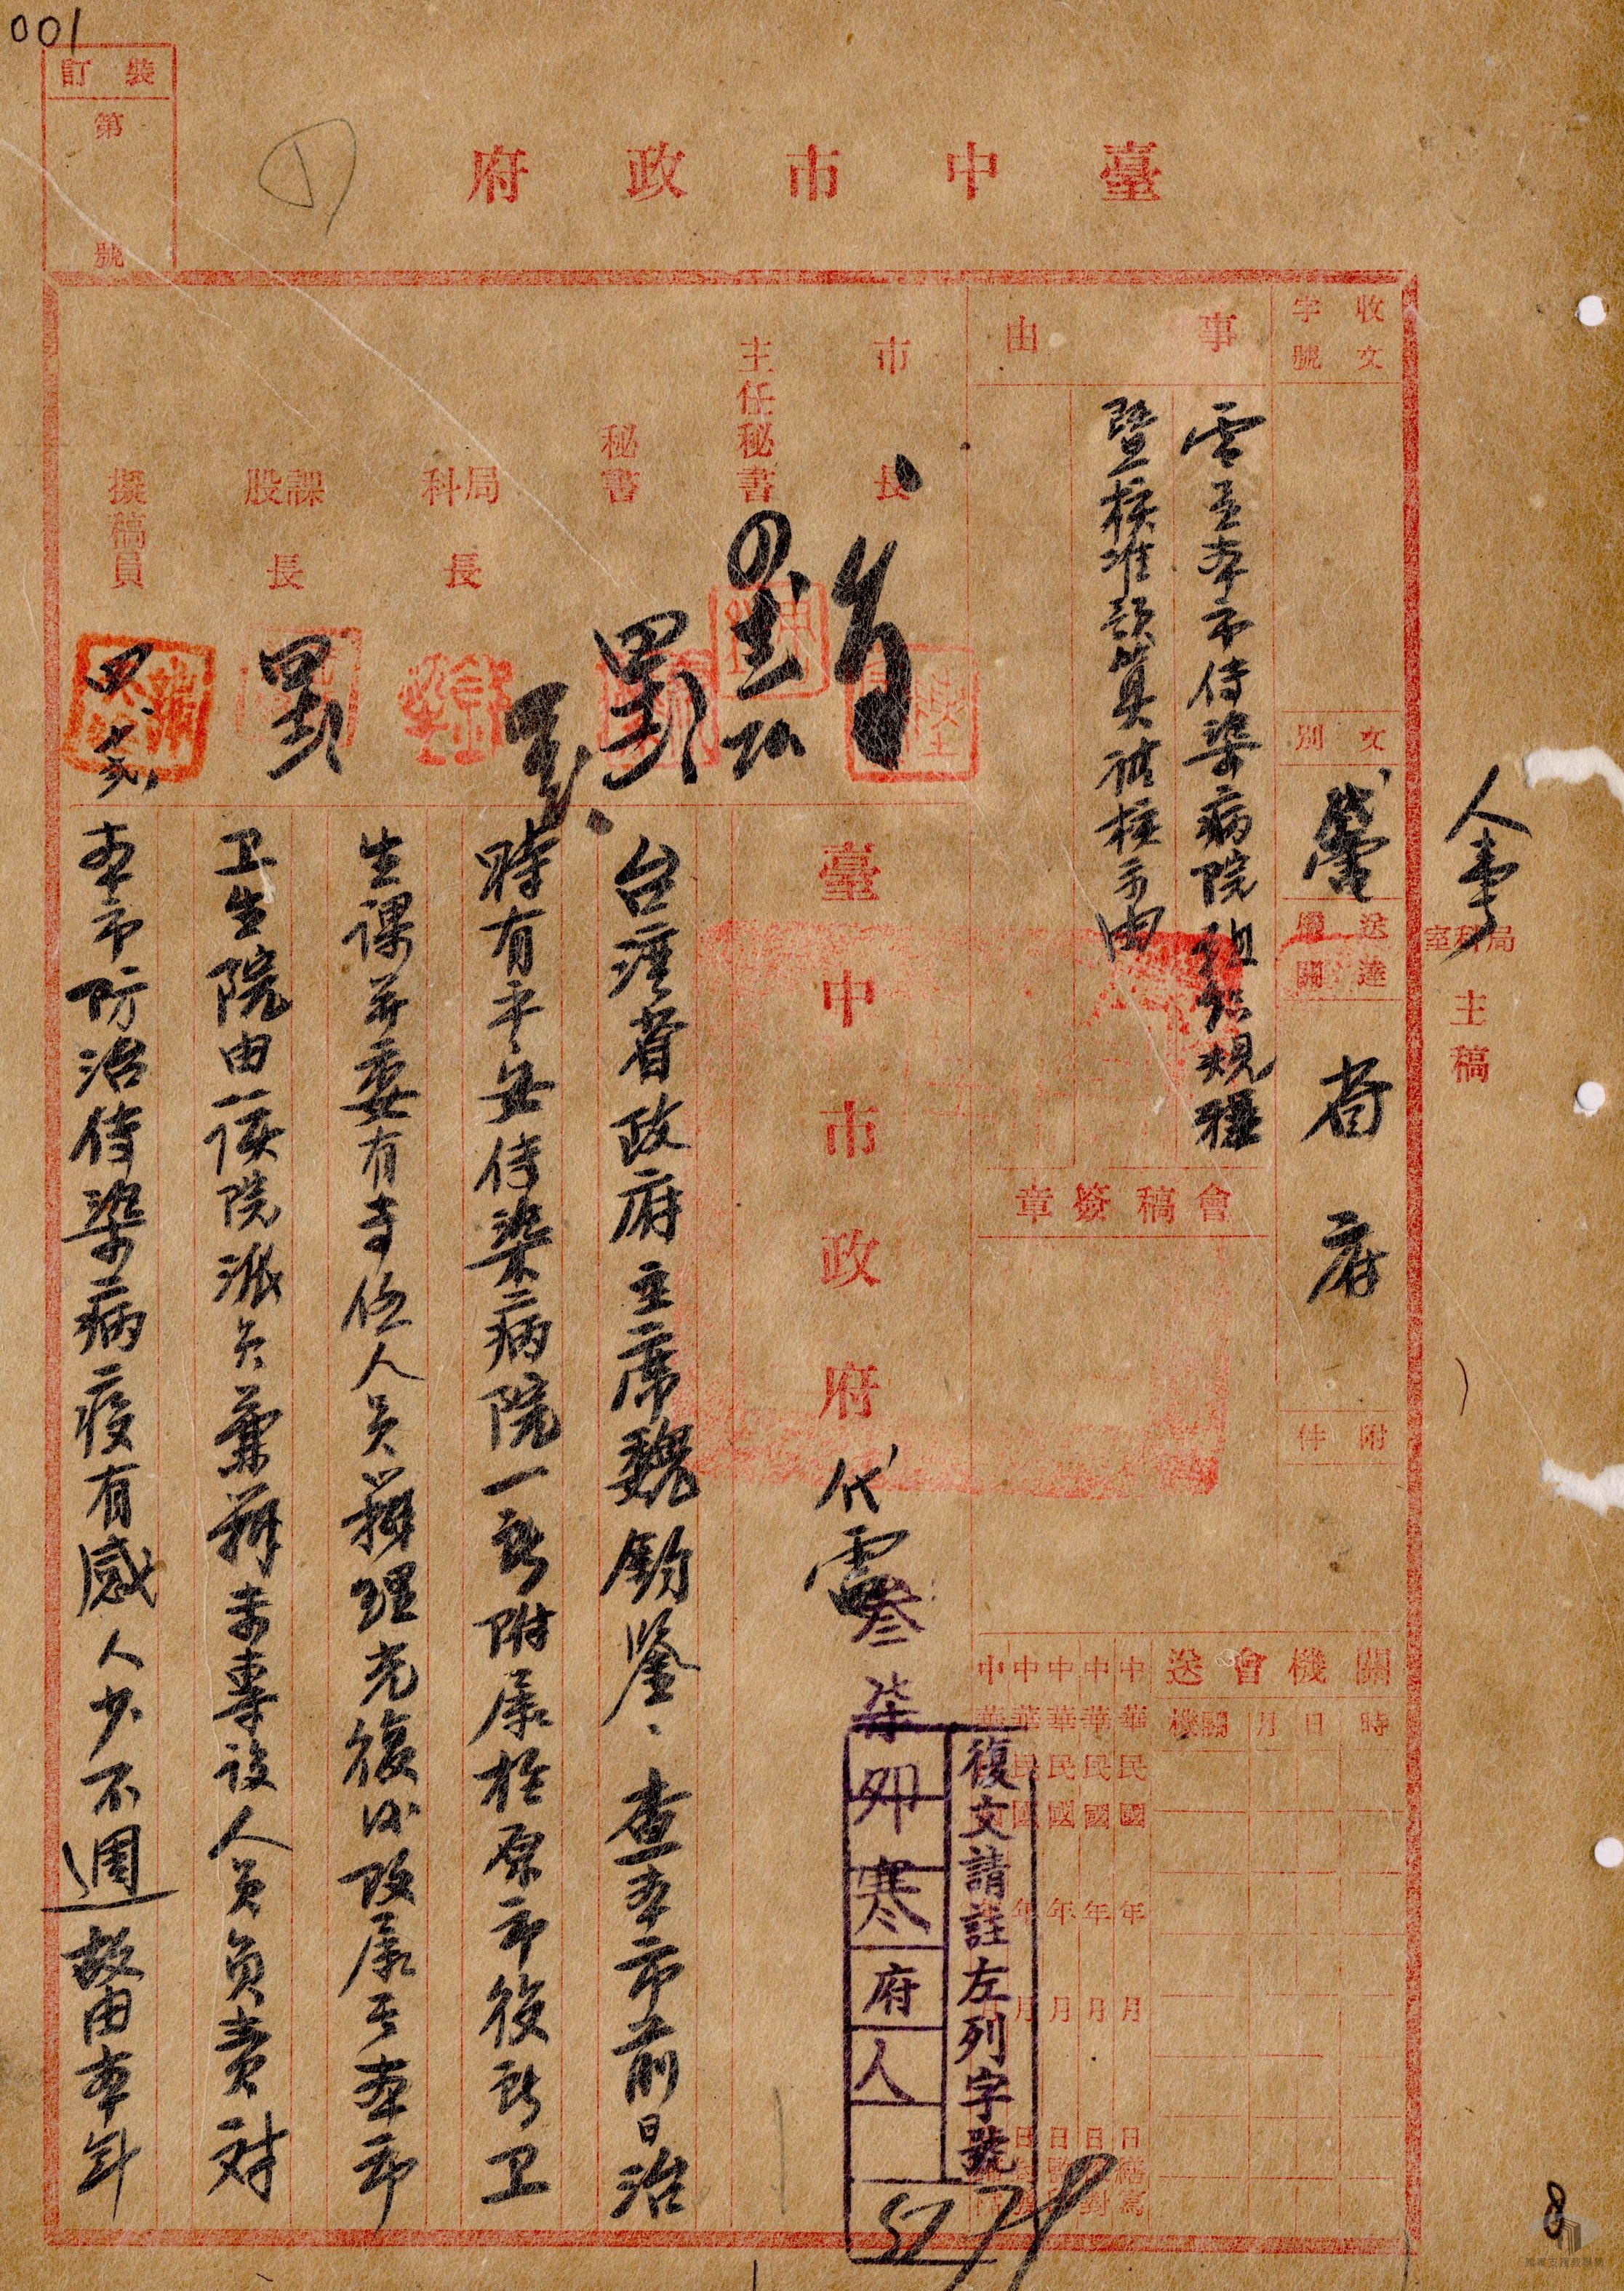 001
裝訂
第
號
臺中市政府
人事
局科室主稿
收文
字號
文別
代電
送達機關
省府
附件
事由
電呈本市傳染病院組織規程
暨核准預算祈核示由
會稿簽章
關機會送
時
日
月
機關
中華民國 年 月 日 繕寫
中華民國 年 月 日 校對
中華民國 年 月 日
中華民國 年 月 日
中華民國 年 月 日
市長
主任秘書
秘書
局科長
課股長
擬稿員
臺中市政府代電
叁柒卯寒府人
5279
復文請註左列字號
台灣省政府主席魏鈞鑒、查本市前日治
時有平安傳染病院一所附屬於原市役所卫
生課并委有專任人員辦理光復後改屬于本市
卫生院由該院派員兼辦未專設人員負責对
本市防治傳染病疫有感人少不週故由本年
8